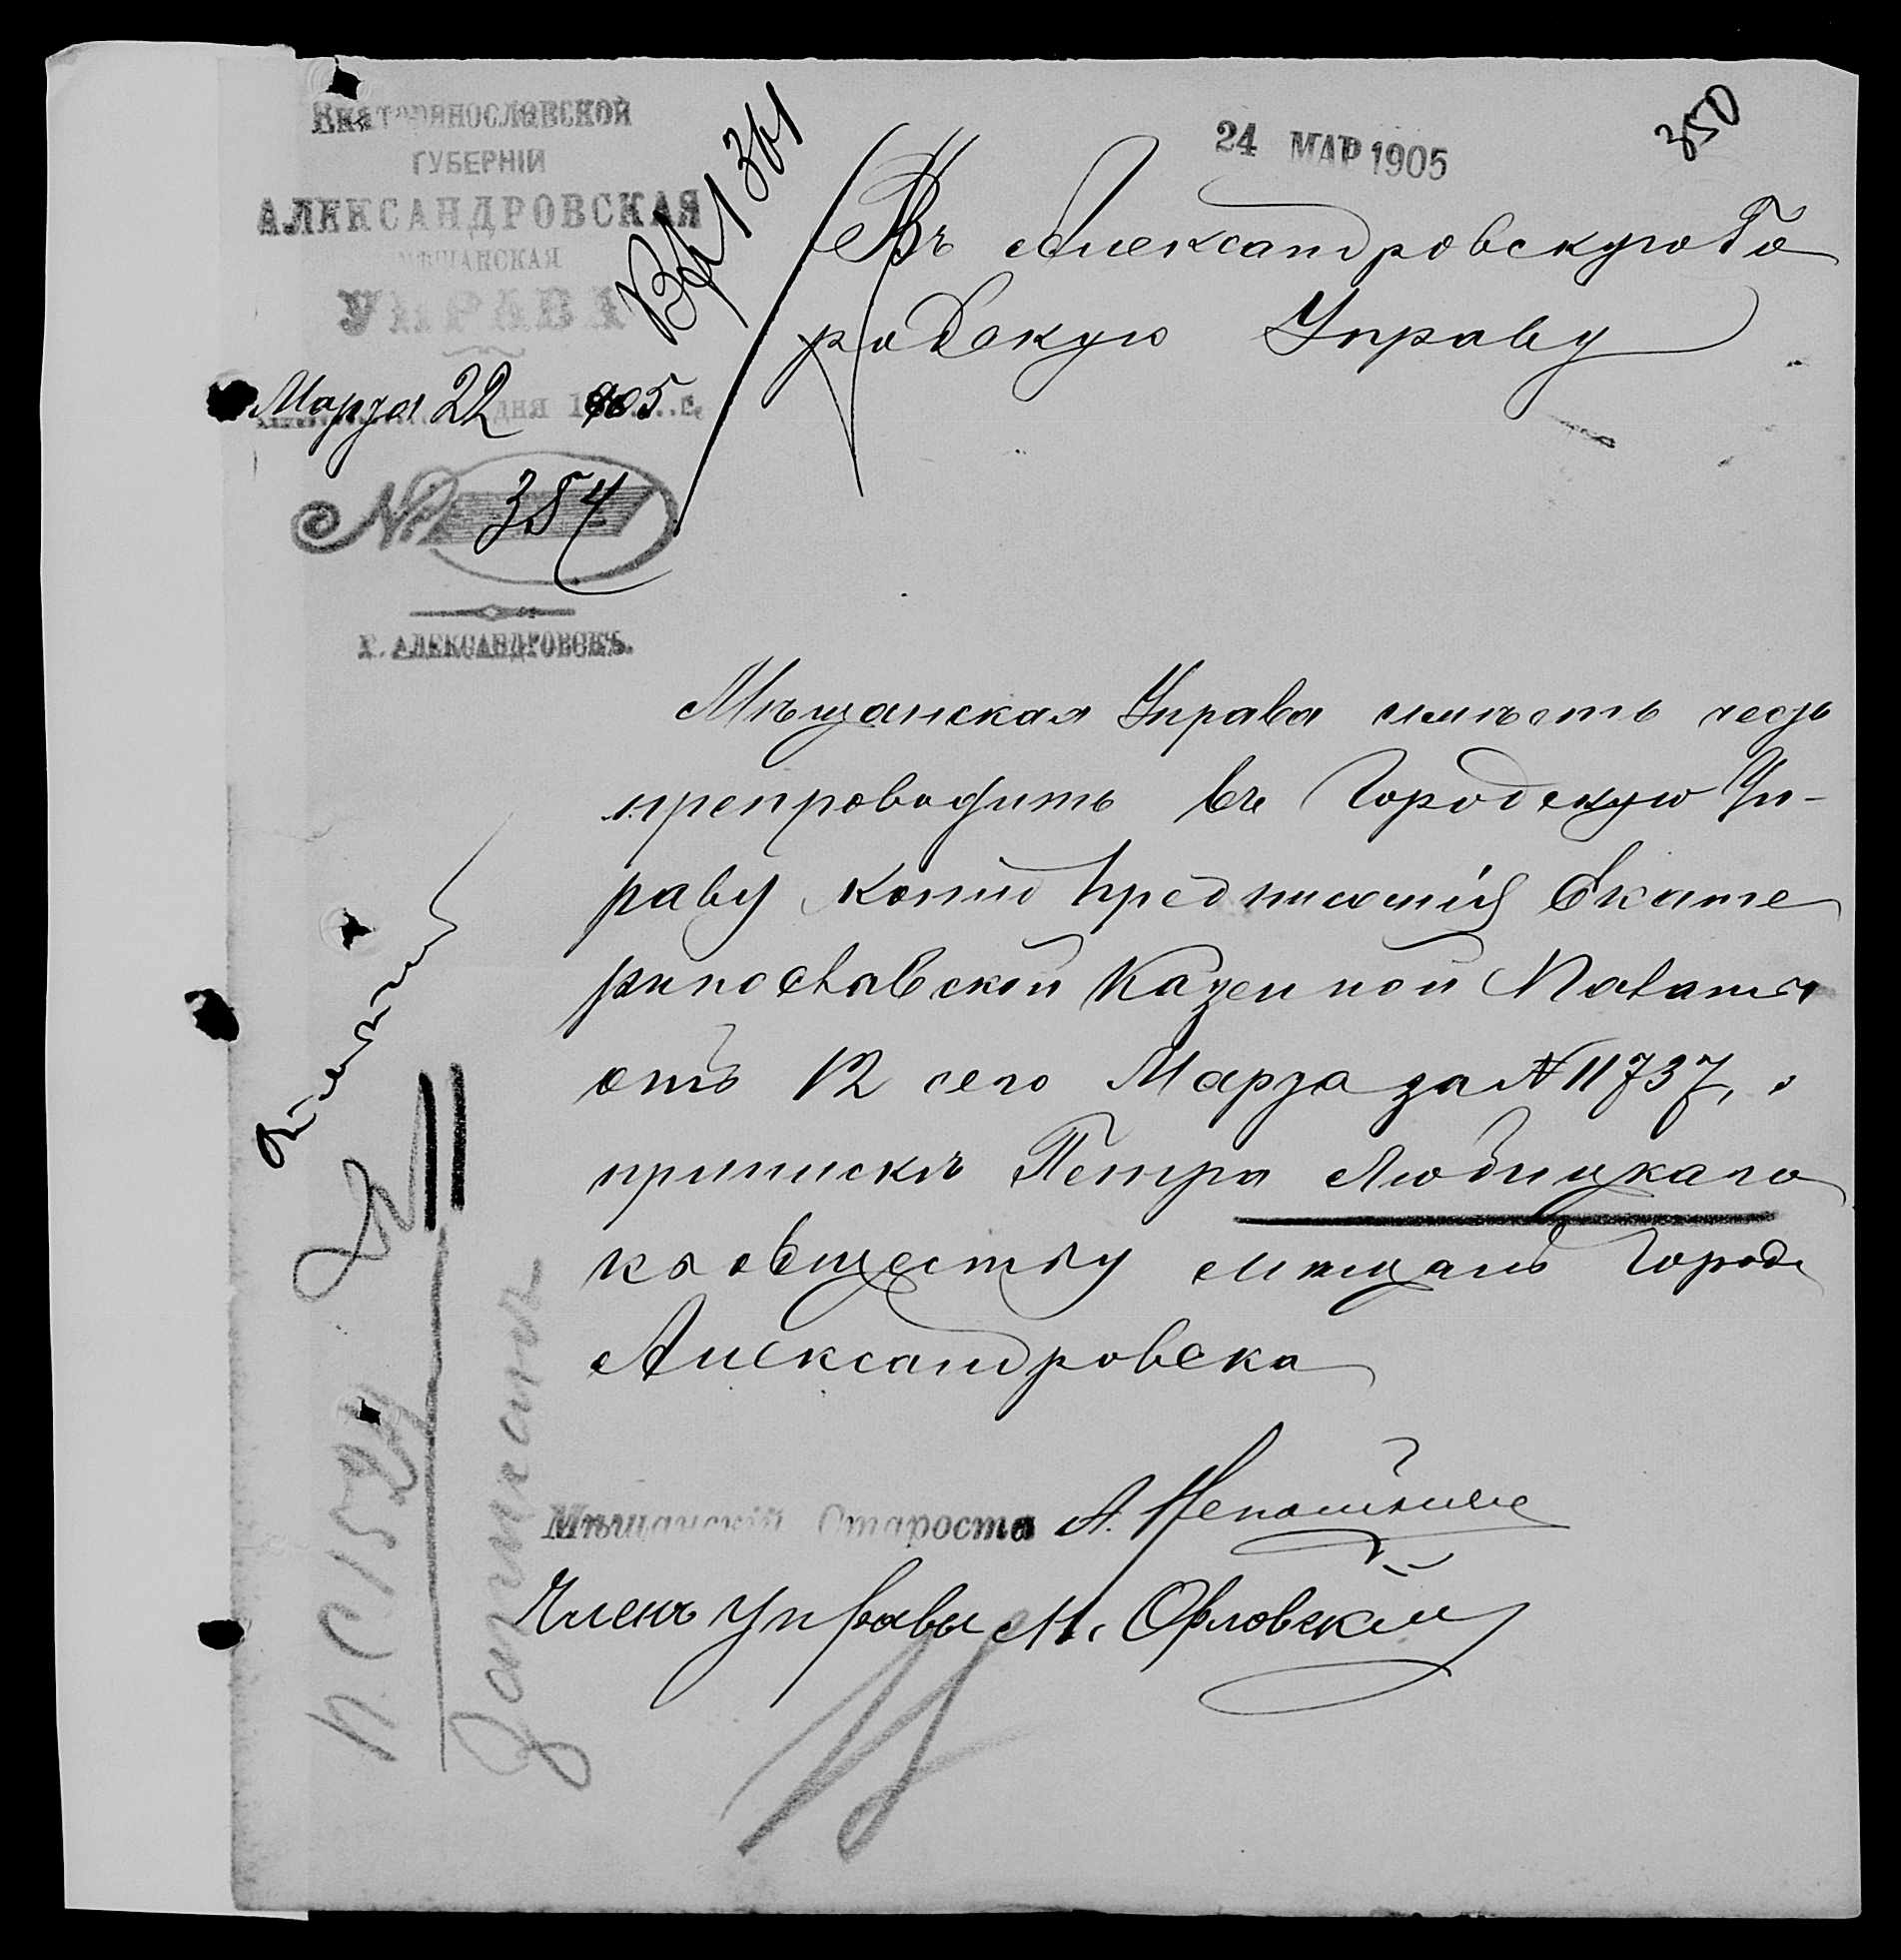 Екатеринославской
ГУБЕРНІИ
АЛЕКСАНДРОВСКАЯ
МѢЩАНСКАЯ
УПРАВА
Марта 22 дня 1905 г.
№ 354
Г. АЛЕКСАНДРОВСКЪ.
24 МАР 1905
350
Въ Александровскую Го
родскую Управу
Мѣщанская Управа имѣетъ честь
препроводить въ Городскую Уп-
раву копію предписанія Екате
ринославской Казенной Палаты
отъ 12 сего Марта за № 11737, о
припискѣ Петра Любицкаго
къ обществу мѣщанъ города
Александровска
Мѣщанскій Староста А.
Членъ Управы М. Орловскій